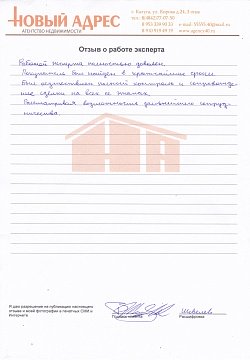 НОВЫЙ АДРЕС
АГЕНТСТВО НЕДВИЖИМОСТИ
г. Калуга, ул. Кирова д.21, 3 этаж
тел: 8(4842)
e-mail: NSVM.40@mail.ru
www.agency40.ru
Отзыв о работе эксперта
Работой эксперта полностью доволен.
Покупатель был найден в кратчайшие сроки.
Был осуществлен полный контроль и сопровожде-
ние сделки на всех ее этапах.
Рассматриваю возможность дальнейшего сотруд-
ничества.
Я даю разрешение на публикацию настоящего
отзыва и моей фотографии в печатных СМИ и
Интернете
Подпись клиента
Расшифровка